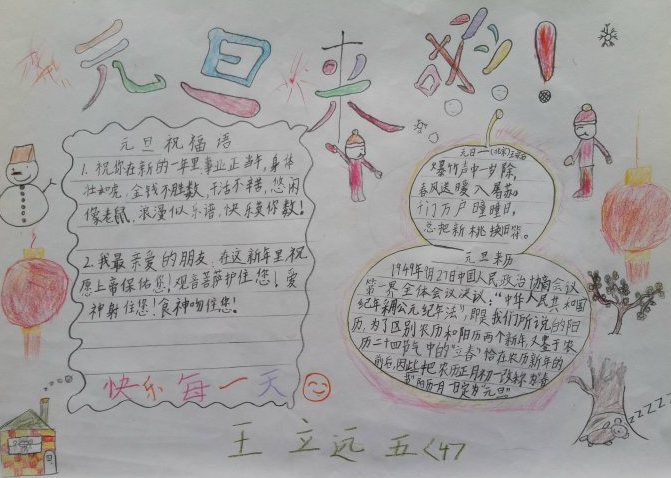 元旦来啦!
元旦祝福语
1.祝你在新的一年里事业正当午,身体
壮如虎,金钱不胜数,干活不辛苦,悠闲
像老鼠,浪漫似乐谱,快乐莫你数!
2.我最亲爱的朋友,在这新年里,祝
愿上帝保佑您!观音菩萨护住您!爱
神射住您!食神吻住您!
快乐每一天
元日—(北宋)王安石
爆竹声中一岁除,
春风送暖入屠苏。
千门万户曈曈日,
总把新桃换旧符。
元旦来历
1949年9月27日中国人民政治协商会议
第一届全体会议决议:"中华人民共和国
纪年采用公元纪年法",即是我们所说的阳
历,为了区别农历和阳历两个新年,又鉴于农
历二十四节气中的"立春"恰在农历新年的
前后,因此把农历正月初一改称为"春
节"阳历一月一日定为"元旦"
zzzz
王立远 五<4>